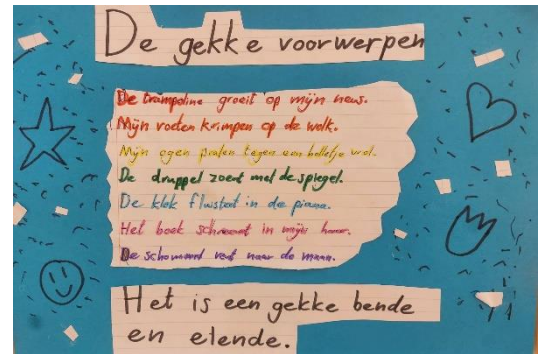 De gekke voorwerpen
De trampoline groeit op mijn neus.
Mijn voeten krimpen op de wolk.
Mijn ogen praten tegen een bolletje wol.
De druppel zoent met de spiegel.
De klok fluistert in de piano.
Het boek schreeuwt in mijn
De schoorsteen naar de maan.
Het is een gekke bende
en elende.